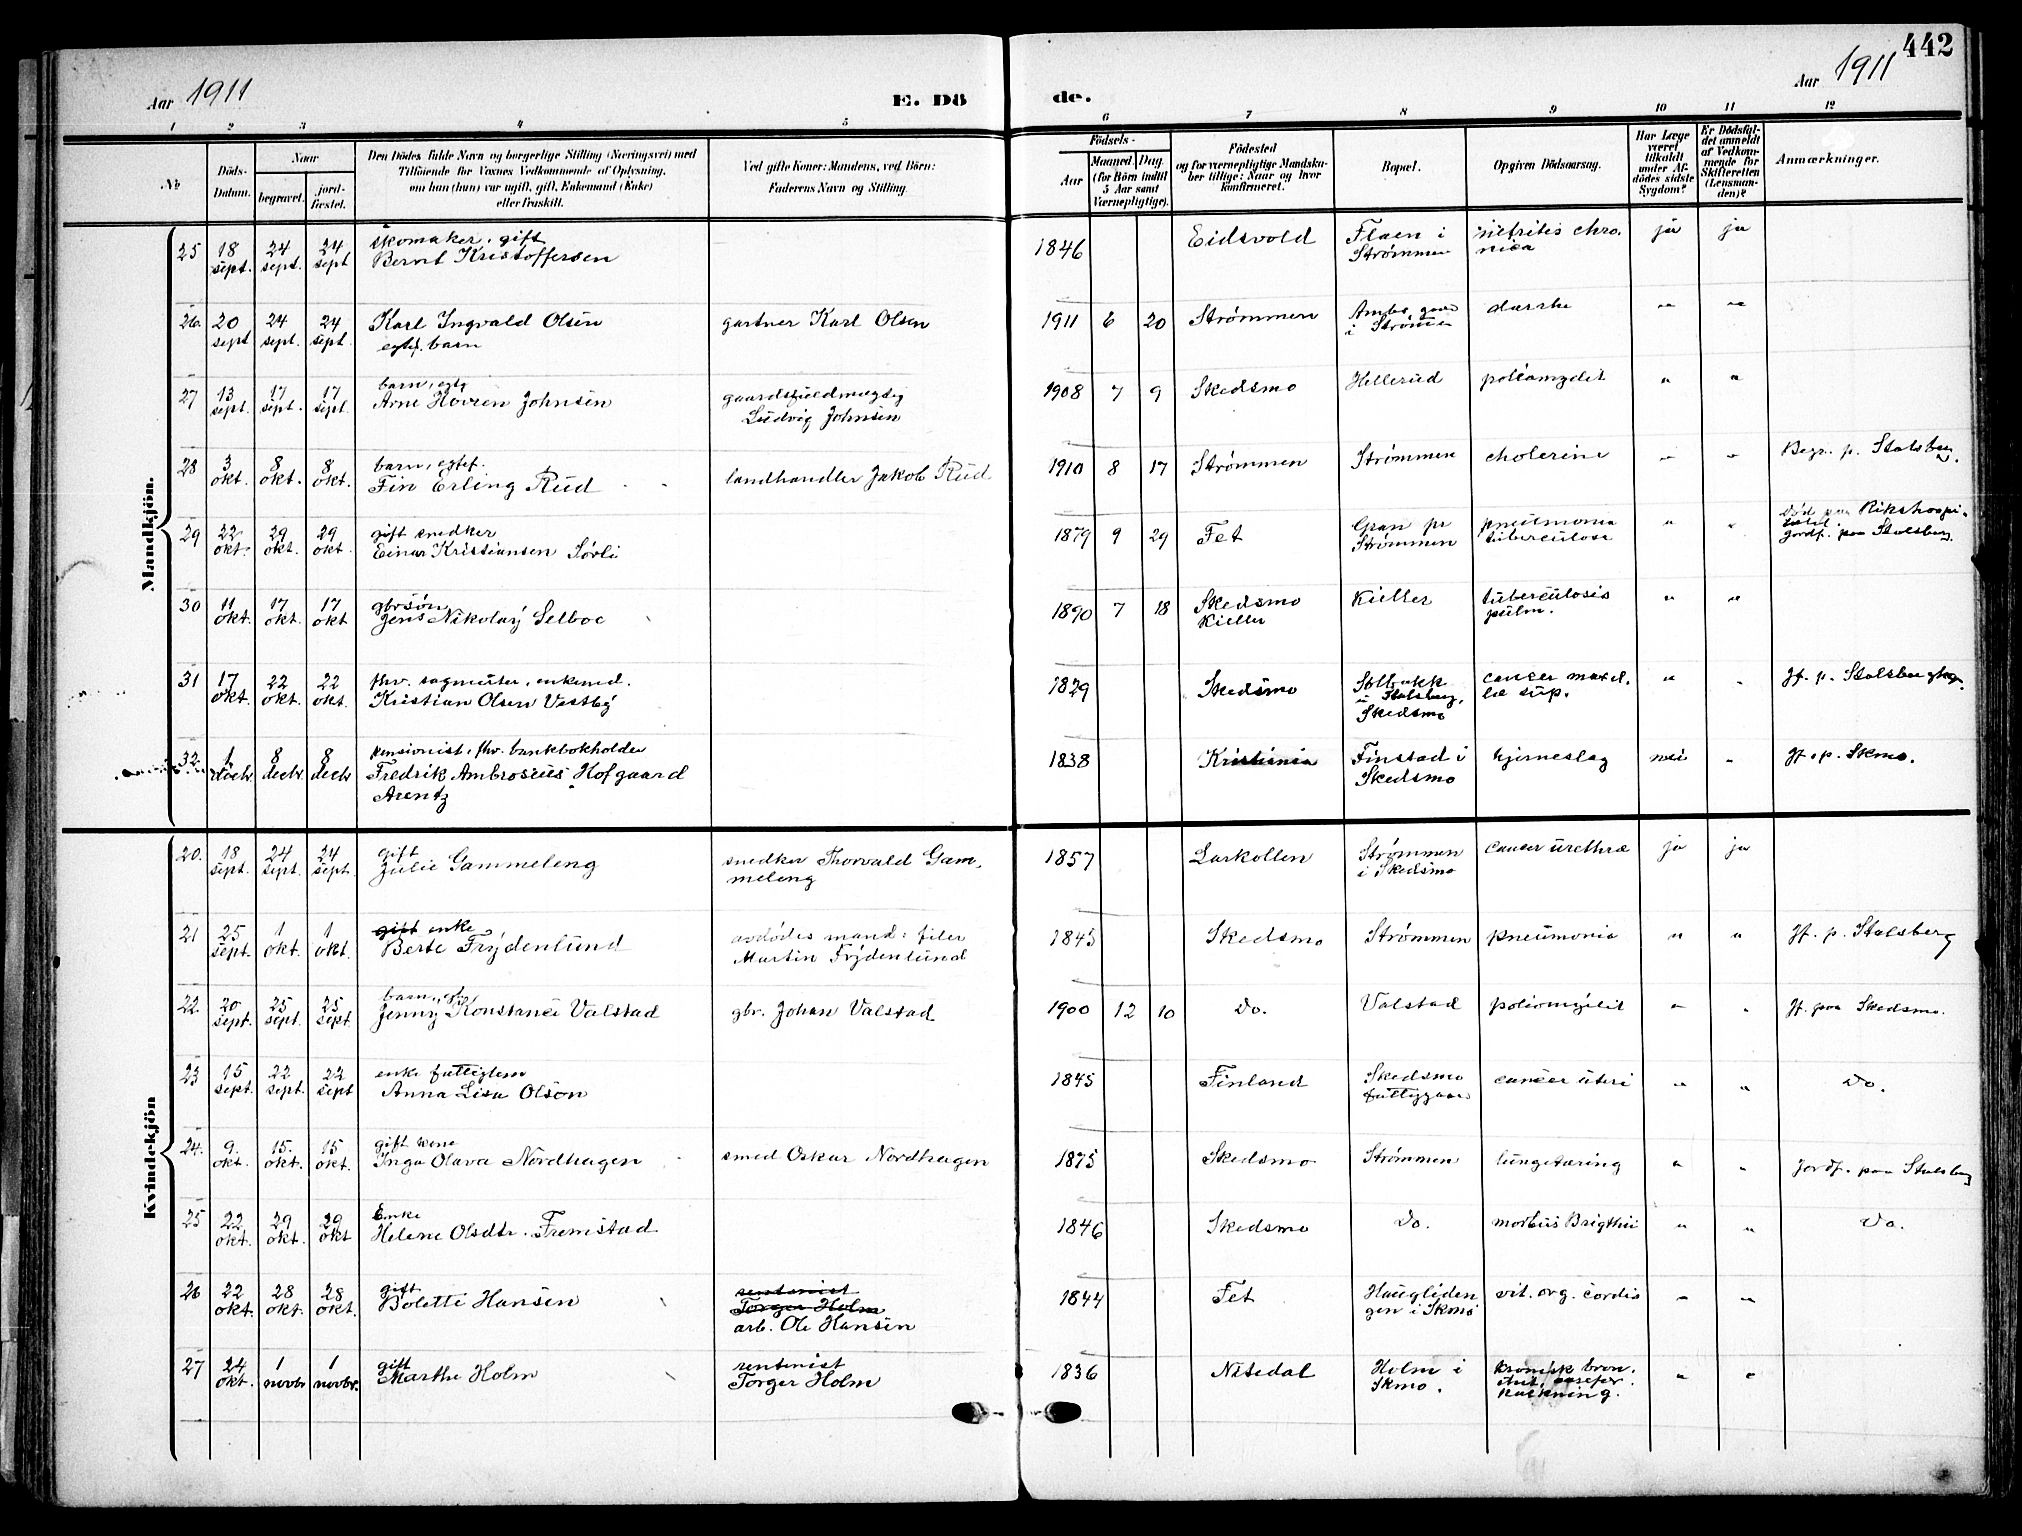 442
Aar 1911
E. Dö
de.
Aar 1911
1 2 3 4 5
6 7 8 9 10 11 12
No
Döds-
Datum.
Naar
begravet.
jord-
fæstet.
Den Dödes fulde Navn og borgerlige Stilling (Næringsvei) med
Tilföiende for Voxnes Vedkommende af Oplysning,
om han (hun) var ugift, gift, Enkemand (Enke)
eller fraskilt.
Ved gifte Koner: Mandens, ved Börn:
Faderens Navn og Stilling.
Födsels-
Aar
Maaned Dag.
(for Börn indtil
5 Aar samt
Værnepligtige).
Födested
og for værnepligtige Mandska-
ber tillige: Naar og hvor
konfirmeret.
Bopæl.
Opgiven Dödsaarsag.
Har Læge
været
tilkaldt
under Af-
dödes sidste
Sygdom?
Er Dödsfal-
det anmeldt
af Vedkom-
mende for
Skifteretten
(Lensman-
den)?
Anmærkninger.
Mandkjön.
25 18 sept. 24 sept. 24 sept skomaker, gift
Bernt Kristoffersen 1846 Eidsvold Flaen i Strømmen nefritis chronica ja ja
26. 20 sept 24 sept. 24 sept. Karl Ingvald Olsen
egtef. barn gartner Karl Olsen 1911 6 20 Strømmen i Strømmen " "
27 13 sept. 17 sept. 17 sept. barn, egte
Arne Hovren Johnsen gaardsfuldmægtig
Ludvig Johnsen 1908 7 9 Skedsmo Hellerud " "
28 3 okt. 8 okt. 8 okt. barn, egtef.
Fin Erling Rud landhandler Jakob Rud 1910 8 17 Strømmen Strømmen cholerine " " Begr. p. Stalsberg.
29 22 okt. 29 okt. 29 okt. gift snedker
Einar Kristiansen Sørli 1879 9 29 Fet Gran pr Strømmen pneumonia tuberculosa " " Død paa Rikshospitalet.
Jordf. paa Stalsberg.
30 11 okt. 17 okt. 17 okt gbrsøn
Jens Nikolay Selboe 1890 7 18 Skedsmo Kieller Kieller tuberculosis pulm. " "
31 17 okt. 22 okt. 22 okt. fhv. sagmester, enkemd.
Kristian Olsen Vestby 1829 Skedsmo Solbakk i Stalsberg, Skedsmo cancer sup. " " Jf. p. Stalsberg
32. 1 decbr 8 decbr 8 decbr pensionist, fhv. bankbokholder
Fredrik Ambrosius Hofgaard
Arentz 1838 Kristiania Finstad i Skedsmo hjerneslag nei " Jf. p. Skmo.
Kvindekjön
20. 18 sept. 24 sept. 24 sept. gift
Julie Gammeleng snedker Thorvald Gam-
meleng 1857 Larkollen Strømmen i Skedsmo cancer urethræ ja ja
21 25 sept. 1 okt. 1 okt. gift enke
Berte Frydenlund avdødes mand: filer
Martin Frydenlund 1845 Skedsmo Strømmen pneumonia " " Jf. p. Stalsberg
22 20 sept. 25 sept. 25 sept barn, egte
Jenny Konstance Valstad gbr. Johan Valstad 1900 12 10 Do. Valstad poliomyelit " " Jf. paa Skedsmo.
23 15 sept. 22 sept. 22 sept enke fattiglem
Anna Lisa Olson 1845 Finland Skedsmo fattiggaard cancer uteri " " Do.
24. 9 okt. 15. okt. 15 okt. gift kone
Inga Olava Nordhagen smed Oskar Nordhagen 1875 Skedsmo Strømmen lungetæring " " Jordf. paa Stalsberg
25 22 okt. 29 okt. 29 okt Enke
Helene Olsdtr. Fremstad 1846 Skedsmo Do. morbus Brigthii " " Do.
26 22 okt. 28 okt. 28 okt. gift
Bolette Hansen rentenist
Torger Holm
arb. Ole Hansen 1844 Fet Hauglidengen i Skmo vit. org. cordis " "
27 24 okt. 1 novbr 1 novbr. gift
Marthe Holm rentenist
Torger Holm 1836 Nitedal Holm i Skmo. kronisk " "